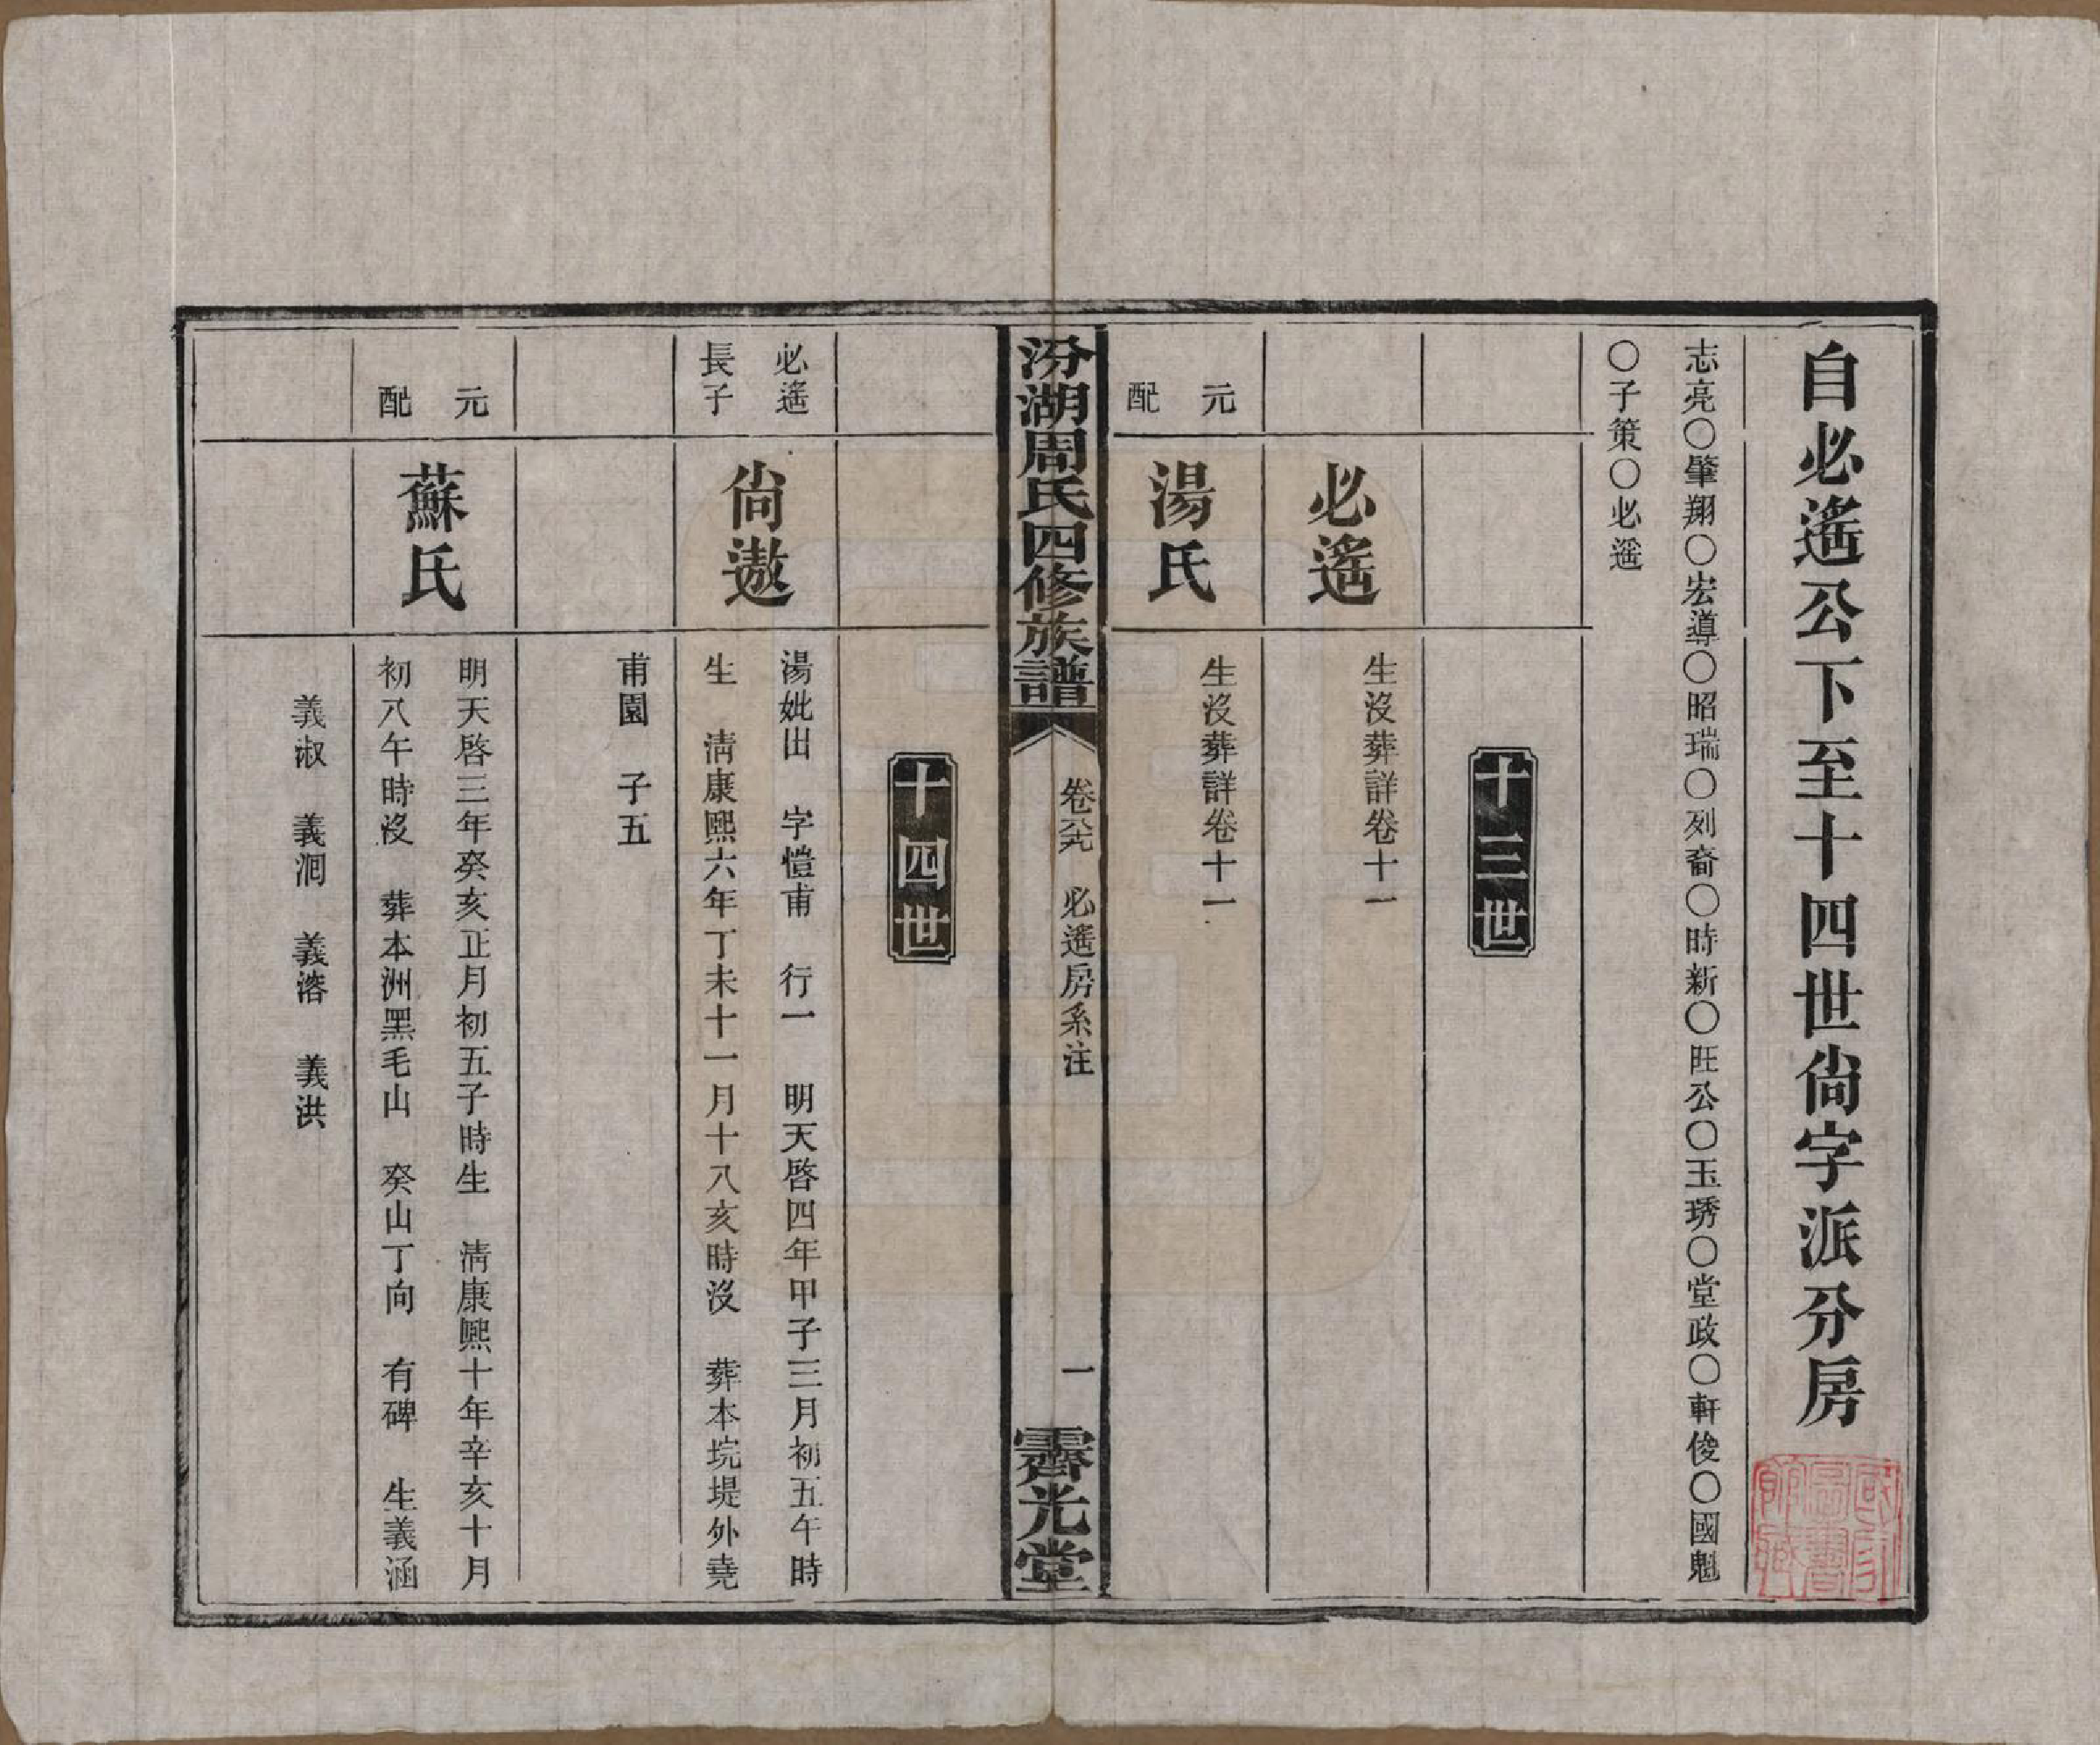 自必遙公下至十四世尙字派分房
志亮〇肇翔〇宏導〇昭瑞〇列裔〇時新〇旺公〇玉琇〇堂政〇軒俊〇國魁
〇子策〇必遥
十三世
必遙
生沒葬詳卷十一
元配
湯氏
生沒葬詳卷十一
汾湖周氏四修族譜
卷六九 必遙房系注
一
霽光堂
十四世
必遙
長子
尙遨
湯妣出 字愷甫 行一 明天啓四年甲子三月初五午時
生 淸康熙六年丁未十一月十八亥時沒 葬本垸堤外堯
甫園 子五
元配
蘇氏
明天啓三年癸亥正月初五子時生 淸康熙十年辛亥十月
初八午時沒 葬本洲黑毛山 癸山丁向 有碑 生義涵
義淑 義洄 義溶 義洪
國家圖書館藏